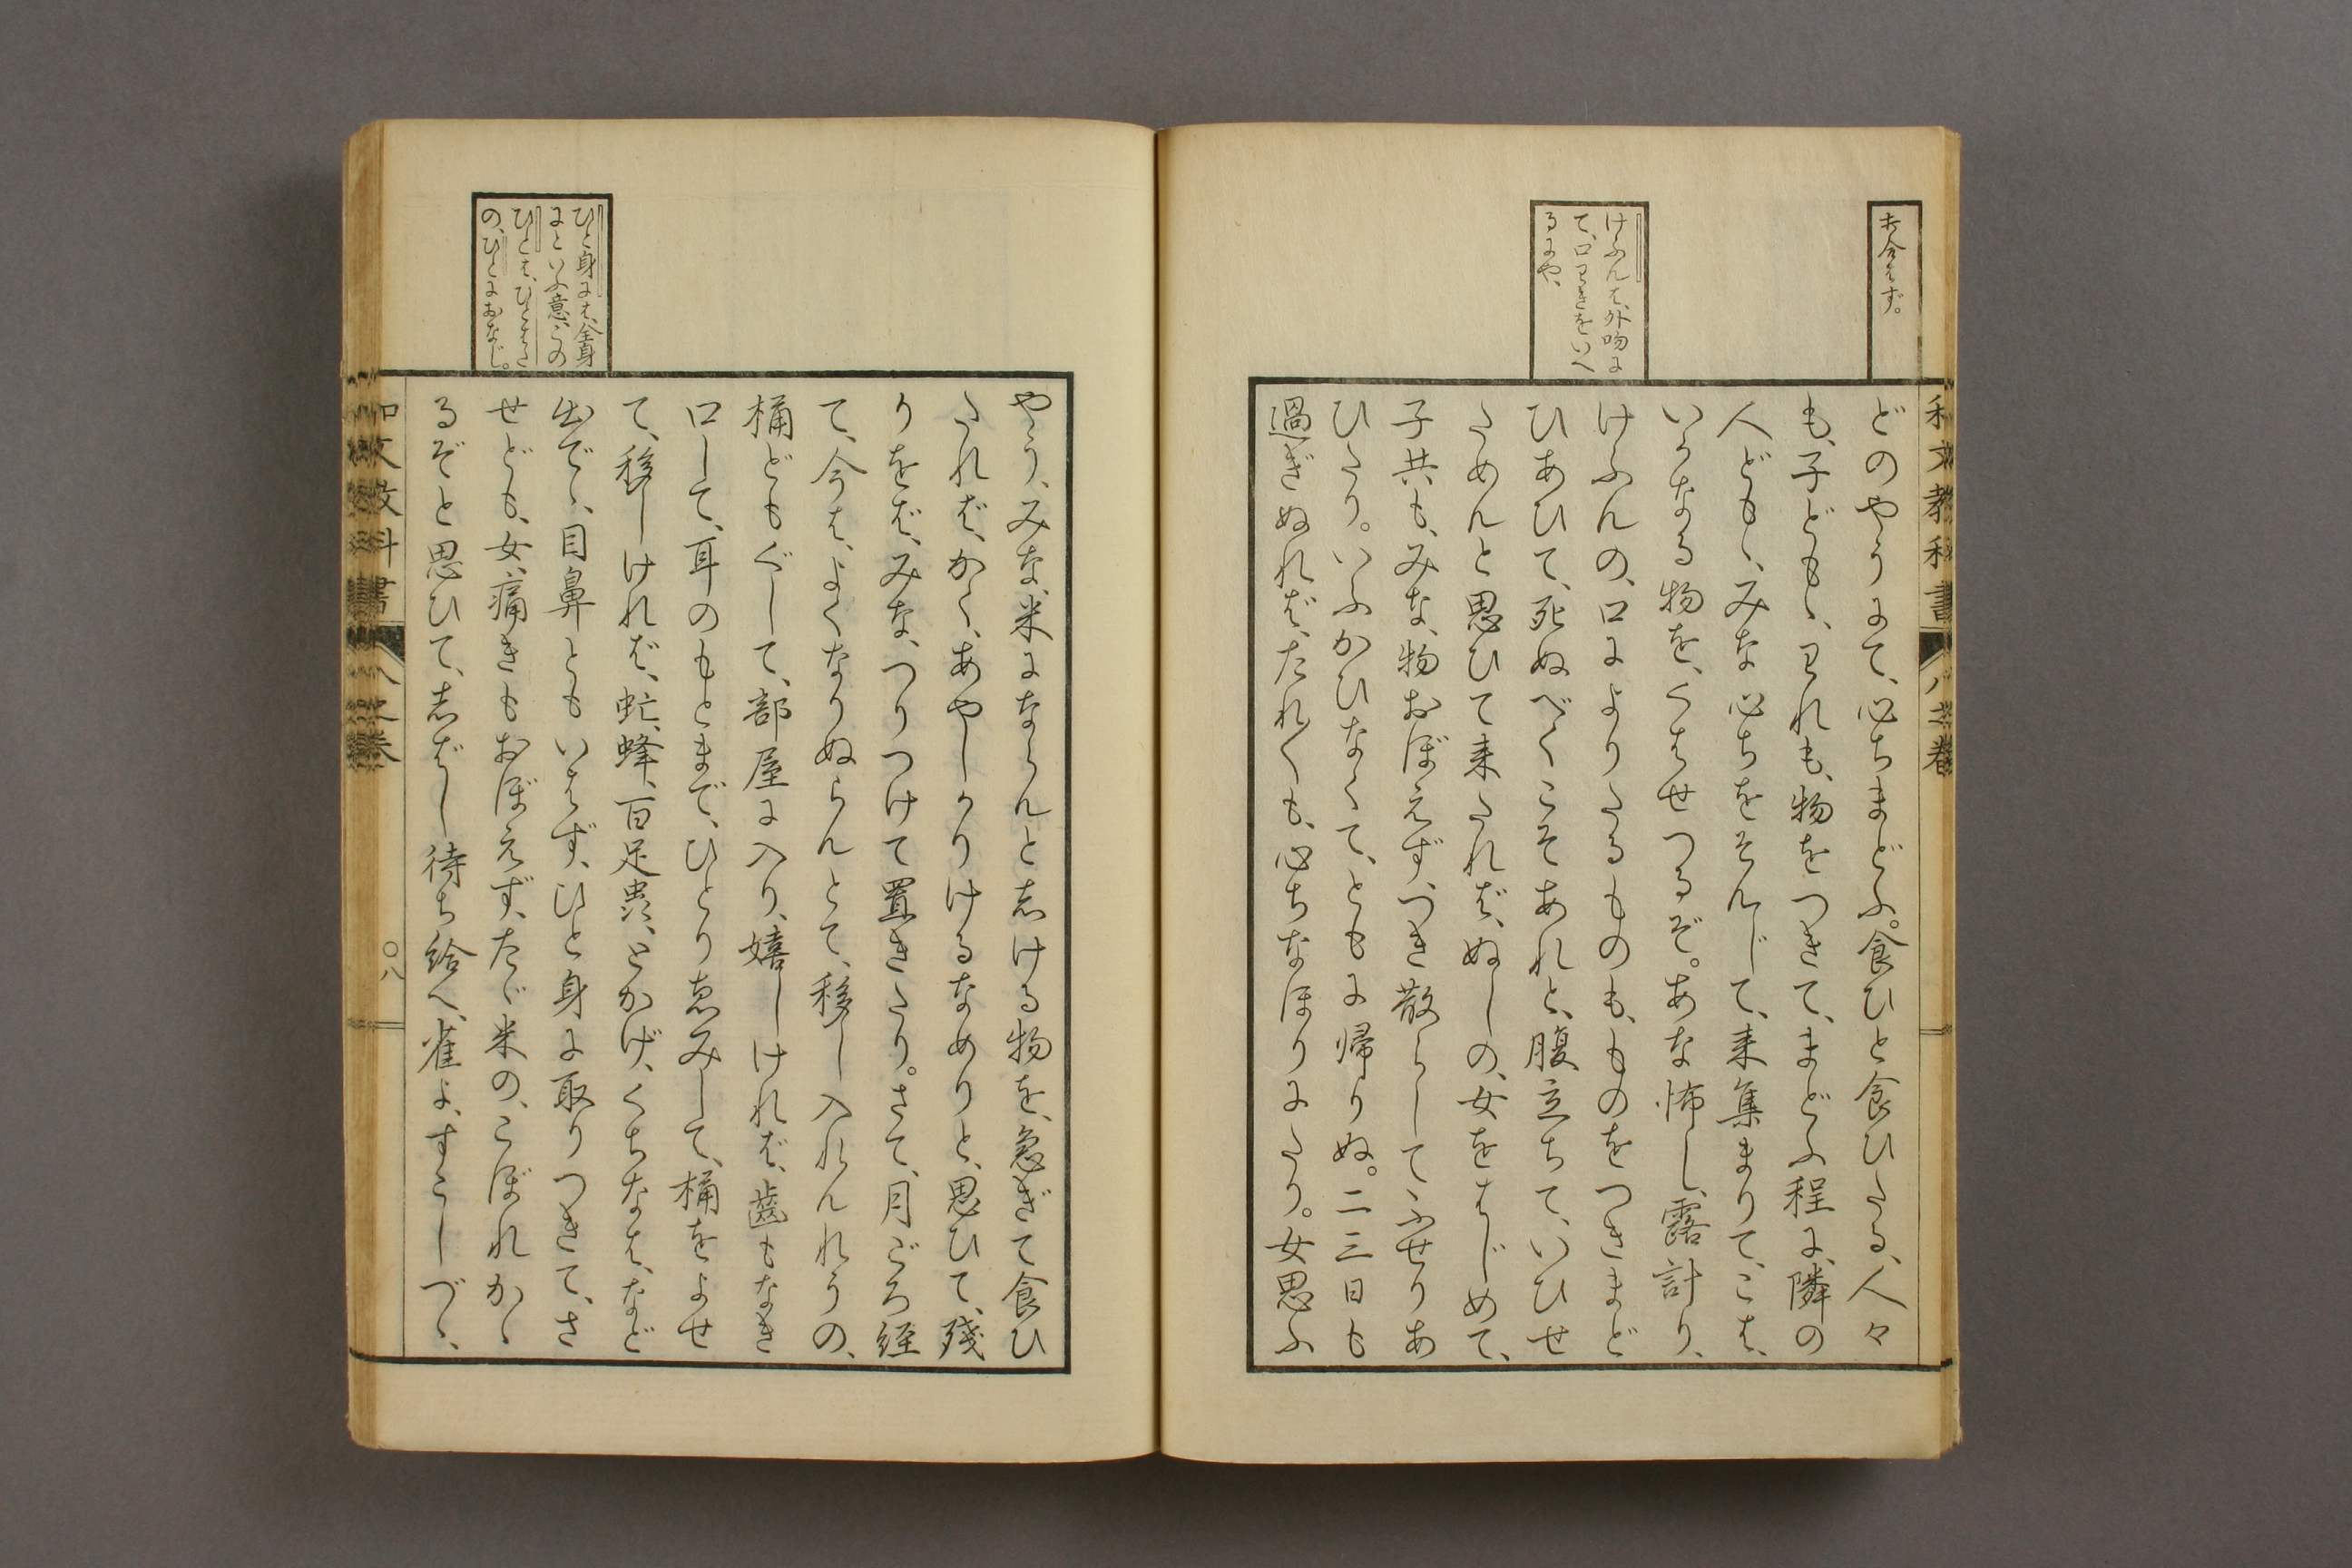 和文教科書 八之巻
考合すべず。
けふんは、外吻に
て、口わきをいへ
るにや、
どのやうにて、心ちまどふ。食ひと食ひたる、人々
も、子どもゝ、われも、物をつきて、まどふ程に、隣の
人どもゝ、みな心ちをそんじて、来集まりて、こは、
いかなる物を、くはせつるぞ。あな怖し、露計り、
けふんの、口によりたるものも、ものをつきまど
ひあひて、死ぬべくこそあれと、腹立ちて、いひせ
ためんと思ひて来たれば、ぬしの、女をはじめて、
子共も、みな、物おぼえず、つき散らしてふせりあ
ひたり。いふかひなくて、ともに帰りぬ。二三日も
過ぎぬれば、たれ〱も、心ちなほりにたり。女思ふ
ひと身には、全身
にといふ意、この
ひとは、ひとはた
の、ひとにおなじ。
やう、みな、米にならんと志ける物を、急ぎて食ひ
たれば、かく、あやしかりけるなめりと、思ひて、残
りをば、みな、つりつけて置きたり。さて、月ごろ経
て、今は、よくなりぬらんとて、移し入れんれうの、
桶どもぐして、部屋に入り、嬉しければ、歯もなき
口して、耳のもとまで、ひとりゑみして、桶をよせ
て、移しければ、虻、蜂、百足虫、とかげ、くちなは、など
出でゝ、目鼻ともいはず、ひと身に取りつきて、さ
せども、女、痛きもおぼえず、たゞ米の、こぼれかゝ
るぞと思ひて、志ばし待ち給へ、雀よ、すこしづゝ、
和文教科書 八之巻
〇八